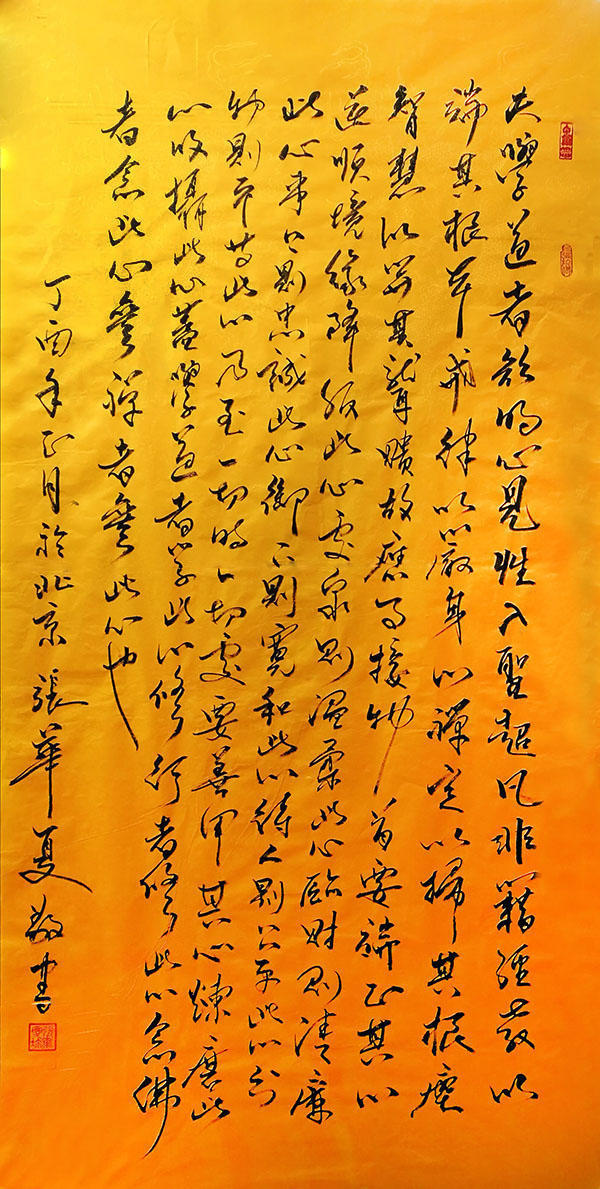 夫學道者欲明心見性入聖超凡非藉經教以
端其根本戒律以嚴身心禪定以掃其根塵
智慧以其聾聵故應事接物首要端正其心
逆順境緣降服此心處眾則溫柔此心臨財則清廉
此心事上則忠誠此心御下則寬和此心待人則公平此心利
物則平等此心乃至一切時一切處要善用其心煉磨此
心收攝此心蓋學道者學此心修行者修此心念佛
者念此心參禪者參此心也
丁酉年正月於北京張華夏敬書